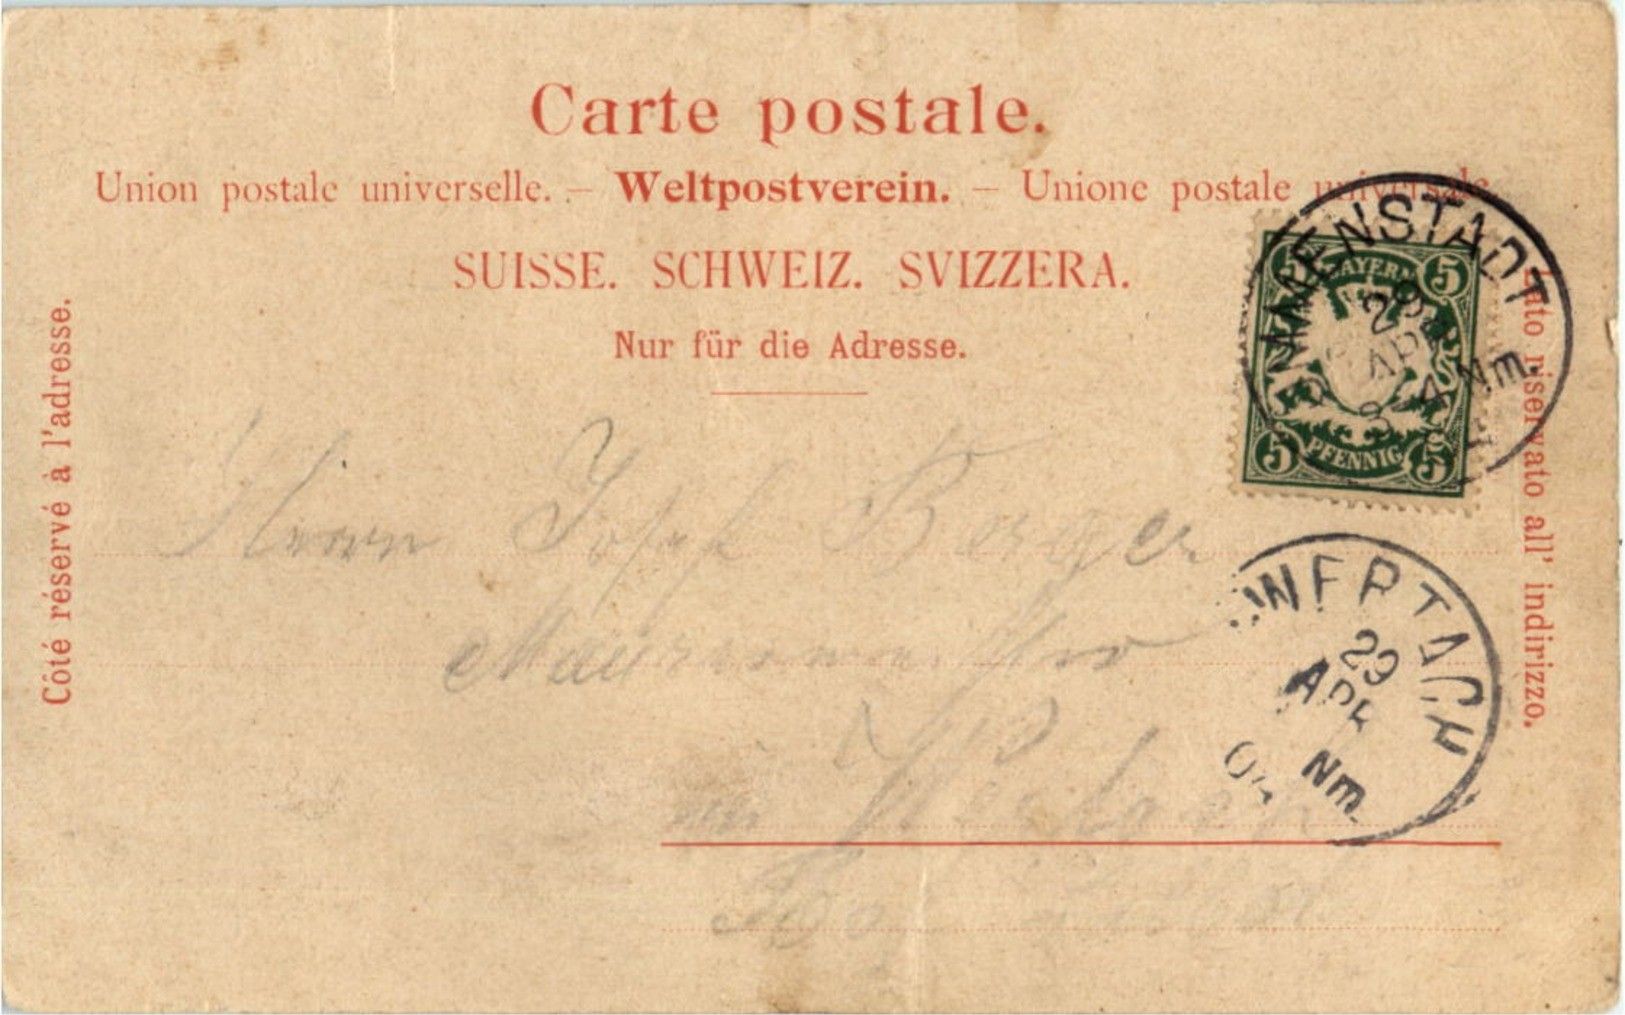 Carte postale.
Union postale universelle. – Weltpostverein. – Unione postale universale.
SUISSE. SCHWEIZ. SVIZZERA.
Nur für die Adresse.
Côté réservé à l'adresse.
Lato riservato all' indirizzo.
5 BAYERN 5
5 PFENNIG 5
IMMENSTADT
29
APR
Nm.
WERTACH
29
APR
Nm.
04
Herrn Josef Berger
in Wertach